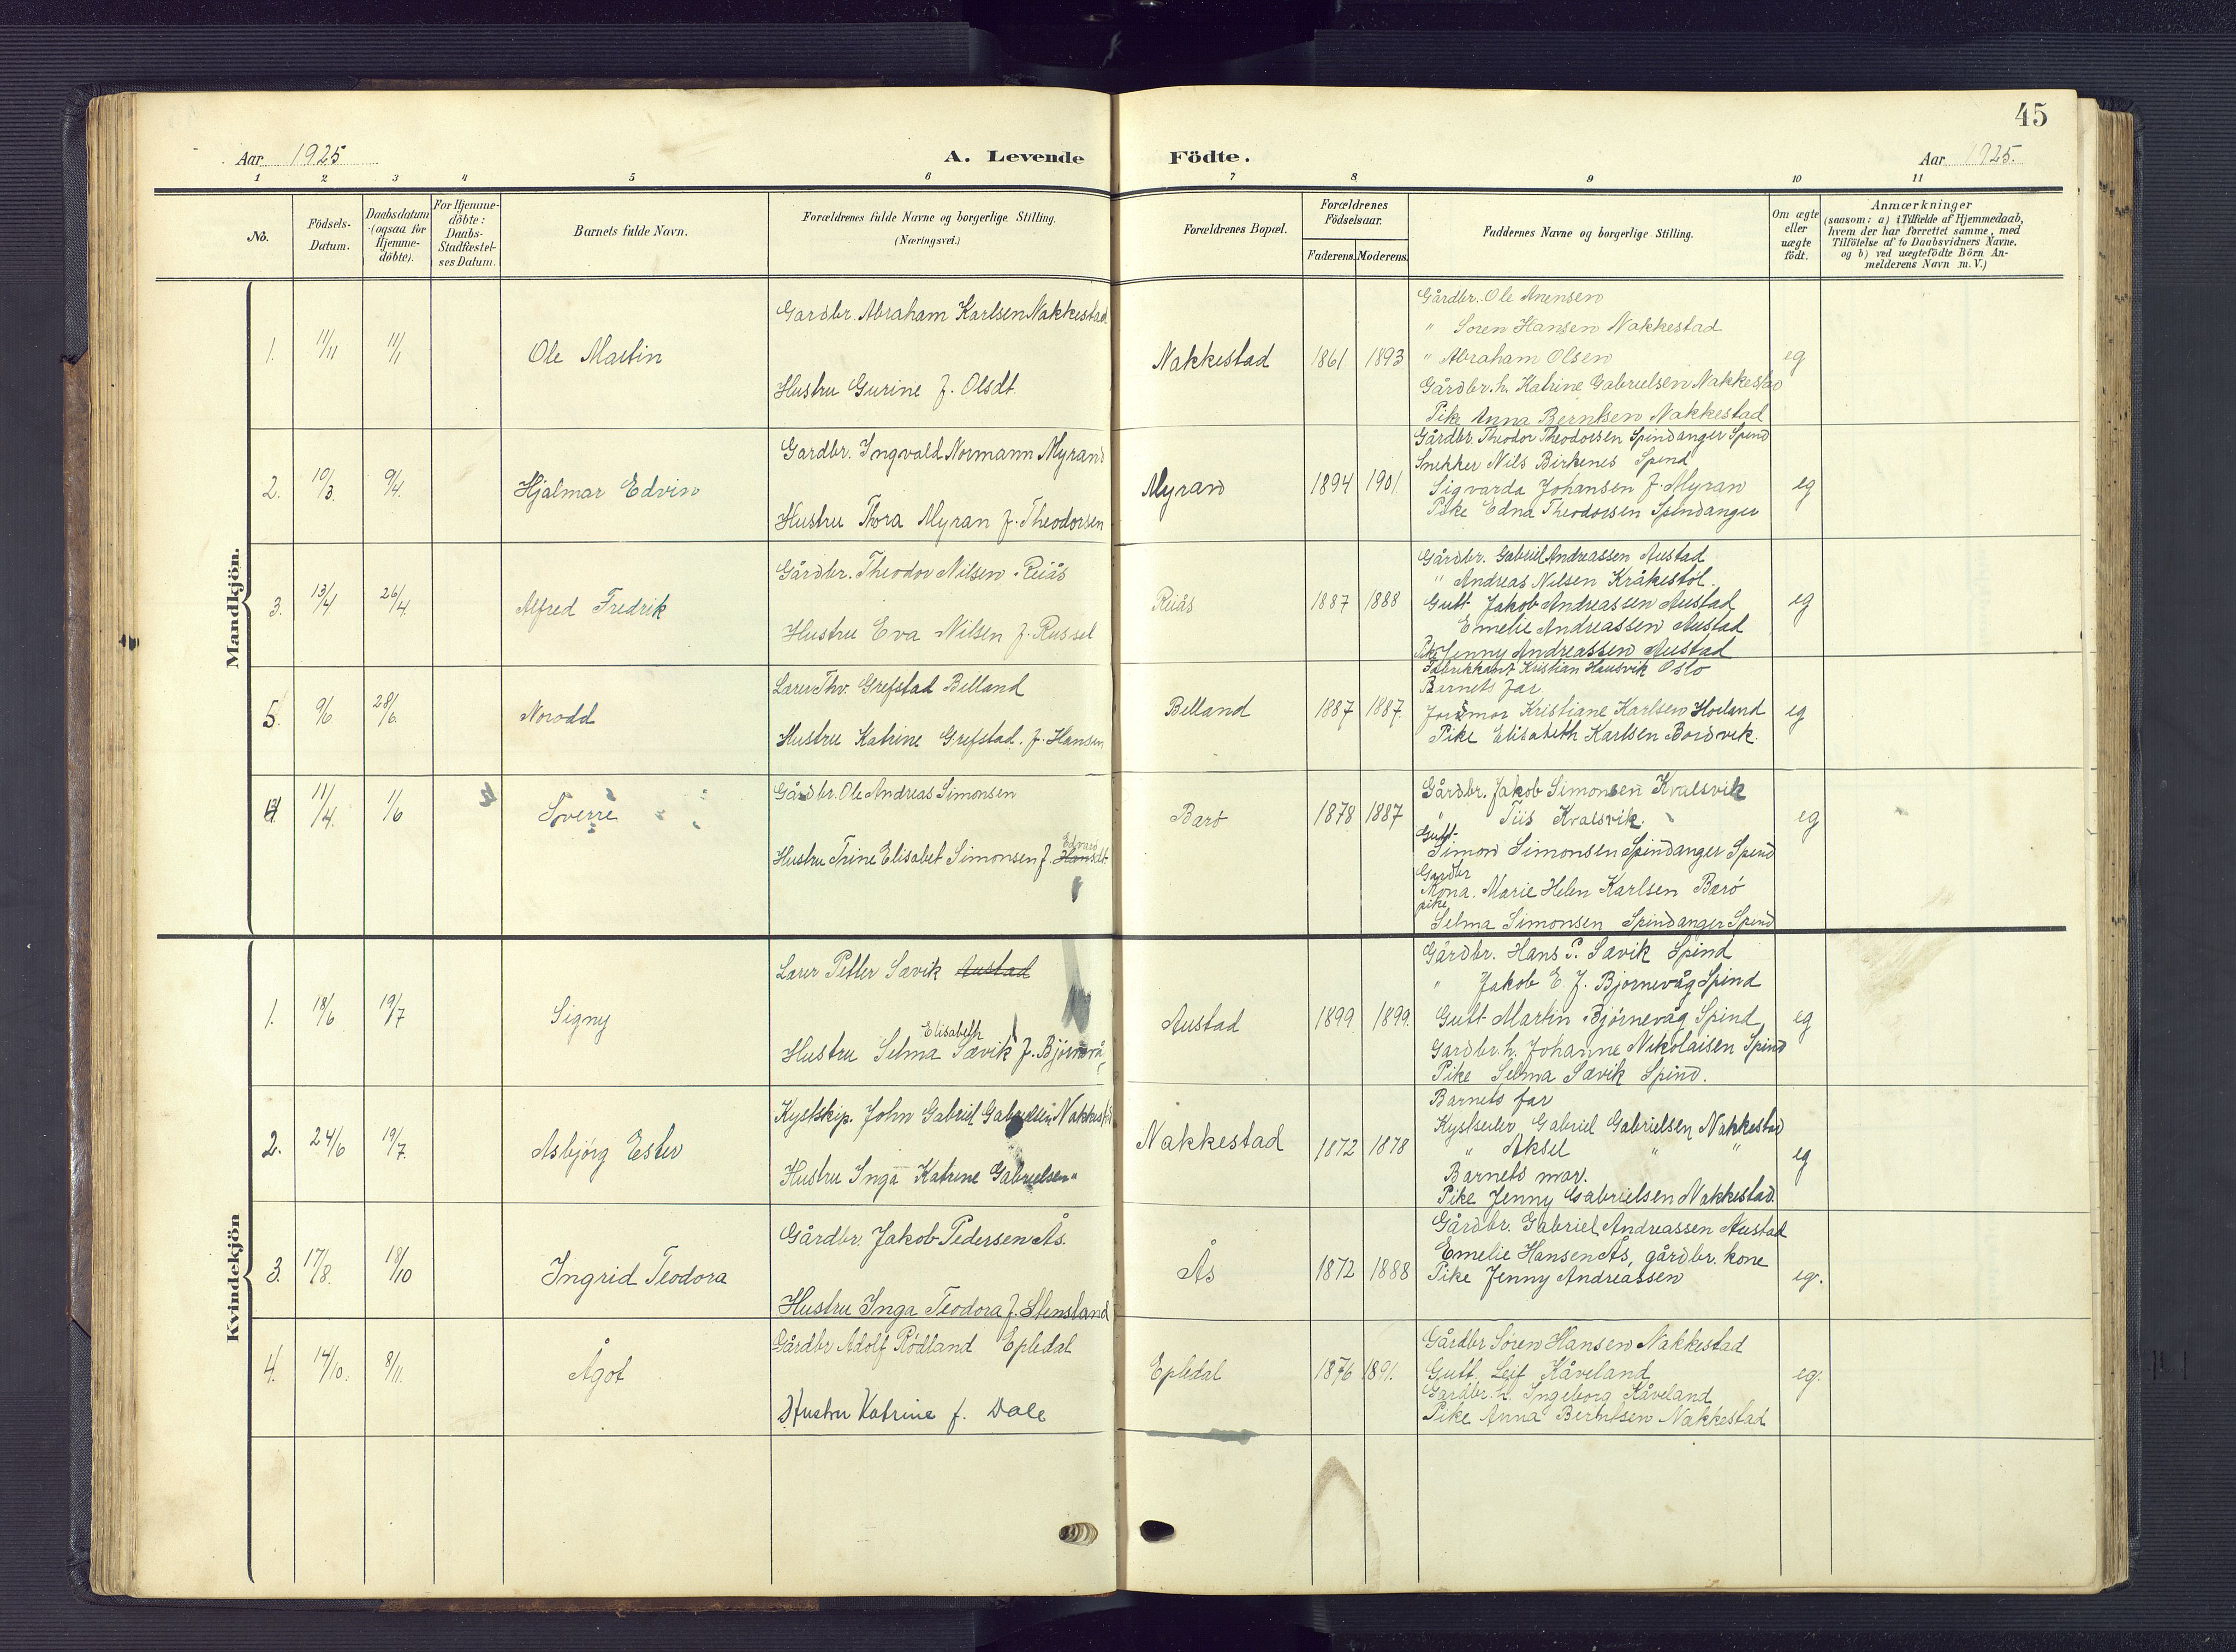 45
Aar 1925
A. Levende Födte.
Aar 1925.
1 2 3 4 5 6 7 8 9 10 11
No.
Födsels-Datum.
Daabsdatum (ogsaa for Hjemme-döbte).
For Hjemme-döbte: Daabs-Stadfæstel-ses Datum.
Barnets fulde Navn.
Forældrenes fulde Navne og borgerlige Stilling.
(Næringsvei.)
Forældrenes Bopæl.
Forældrenes Födselsaar.
Faderens. Moderens.
Faddernes Navne og borgerlige Stilling.
Om ægte eller uægte födt.
Anmærkninger
(saasom: a) i Tilfælde af Hjemmedaab, hvem der har forrettet samme, med Tilföielse af to Daabsvidners Navne. og b) ved uægtefödte Börn An-melderens Navn m.V.)
Mandkjön.
1. 11/11 11/1 Ole Martin
Gardbr. Abraham Karlsen Nakkestad
Hustru Gurine f. Olsdt.
Nakkestad 1861 1893
Gårdbr. Ole Anensen
" Soren Hansen Nakkestad
" Abraham Olsen
Gårdbr. h. Katrine Gabrielsen Nakkestad
Pike Anna Berntsen Nakkestad
eg
2. 10/3. 9/4. Hjalmar Edvin
Gardbr. Ingvald Normann Myrand
Hustru Thora Myran f. Theodorsen
Myrand 1894 1901
Gårdbr. Theodor Theodorsen Spindanger Spind
Snekker Nils Birkenes Spind
Sigvarda Johansen f. Myran
Pike Edna Theodorsen Spindanger
eg
3. 13/4 26/4 Alfred Fredrik
Gårdbr. Theodor Nilsen Reiås
Hustru Eva Nilsen f. Russel
Reiås 1887 1888
Gårdbr. Gabriel Andreassen Austad
" Andreas Nilsen Kråkestøl.
Gutt Jakob Andreassen Austad
Emelie Andreassen Austad
Pike Jenny Andreassen Austad
eg
5. 9/6 28/6. Norodd
Lærer Thv. Grefstad Belland
Hustru Katrine Grefstad. f. Hansen
Belland 1887 1887.
Fabrikkant Kristian Hausvik Oslo
Barnets far
Jordmor Kristiane Karlsen Hoiland
Pike Elisabeth Karlsen Bordvik.
eg
4 11/4. 1/6 Sverre
Gårdbr. Ole Andreas Simonsen
Hustru Trine Elisabet Simonsen f. Hansdt
Edvard
Barö 1878 1887
Gårdbr. Jakob Simonsen Kvalsvik
" Tiis Kvalsvik.
Gutt
Simon Simonsen Spindanger Spind
Gardbr
Kona. Marie Helen Karlsen Barö
pike
Selma Simonsen Spindanger Spind
eg
Kvindekjön
1. 18/6 19/7 Signy
Lærer Petter Sævik Austad
Elisabeth
Hustru Selma Sævik f. Björnevåg
Austad 1899 1899.
Gårdbr. Hans P. Sævik Spind
" Jakob E. J. Bjornevåg Spind
Gutt Martin Björnevåg Spind
Gardbr. h. Johanne Nikolaisen Spind
Pike Selma Sævik Spind.
eg
2. 24/6 19/7. Asbjörg Ester
Kystskip. John Gabriel Gabrielsen Nakkestad
Hustru Inga Katrine Gabrielsen "
Nakkestad 1872 1878
Barnets far
Gabriel Gabrielsen Nakkestad
" Aksel " "
Barnets mor.
Pike Jenny Gabrielsen Nakkestad.
eg
3. 17/8. 18/10 Ingrid Teodora
Gårdbr. Jakob Pedersen Ås.
Hustru Inga Teodora f. Stensland
Ås 1872 1888
Gårdbr. Gabriel Andreassen Austad
Emelie Hansen Ås, gårdbr. kone
Pike Jenny Andreassen
eg.
4. 14/10. 8/11. Ågot
Gårdbr Adolf Rödland Epledal
Hustru Katrine f. Dale
Epledal 1876 1891.
Gårdbr Soren Hansen Nakkestad
Gutt. Leif Kåveland
Gardbr. h. Ingeborg Kåveland
Pike Anna Berntsen Nakkestad
eg.